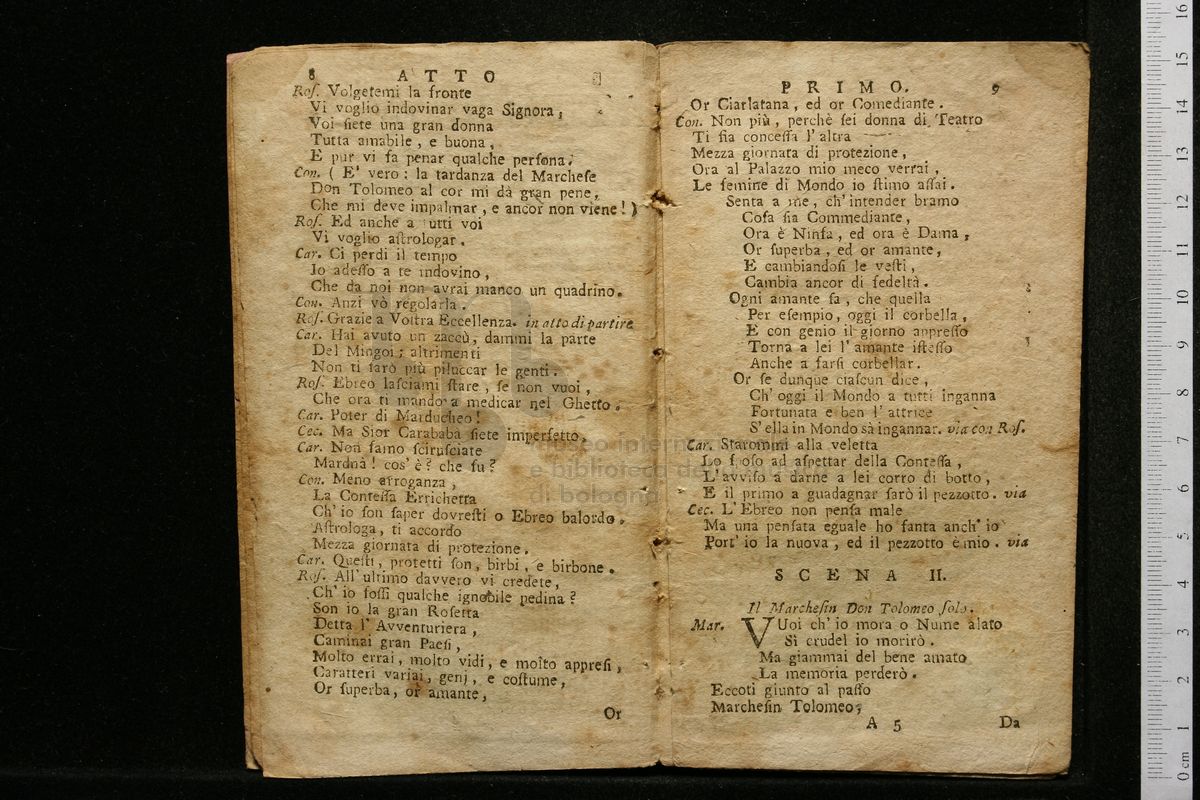 8 ATTO
Roſ. Volgetemi la fronte
Vi voglio indovinar vaga Signora,
Voi ſiete una gran donna
Tutta amabile, e buona,
E pur vi fa penar qualche perſona.
Con. ( E' vero: la tardanza del Marcheſe
Don Tolomeo al cor mi dà gran pene,
Che mi deve impalmar, e ancor non viene! )
Roſ. Ed anche a tutti voi
Vi voglio aſtrologar.
Car. Ci perdi il tempo
Io adeſſo a te indovino,
Che da noi non avrai manco un quadrino.
Con. Anzi vò regolarla.
Roſ. Grazie a Voſtra Eccellenza. in atto di partire
Car. Hai avuto un zaccù, dammi la parte
Del Mingoi; altrimenti
Non ti farò più piluccar le genti.
Roſ. Ebreo laſciami ſtare, ſe non vuoi,
Che ora ti mando a medicar nel Ghetto.
Car. Poter di Marducheo!
Cec. Ma Sior Carababà ſiete imperfetto.
Car. Non ſamo ſciruſciate
Mardnà! cos' è? che fu?
Con. Meno arroganza,
La Conteſſa Errichetta
Ch' io ſon ſaper dovreſti o Ebreo balordo.
Aſtrologa, ti accordo
Mezza giornata di protezione.
Car. Queſti, protetti ſon, birbi, e birbone.
Roſ. All' ultimo davvero vi credete,
Ch' io foſſi qualche ignobile pedina?
Son io la gran Roſetta
Detta l' Avventuriera,
Caminai gran Paeſi,
Molto errai, molto vidi, e molto appreſi,
Caratteri variai, genj, e coſtume,
Or ſuperba, or amante,
Or
PRIMO. 9
Or Ciarlatana, ed or Comediante.
Con. Non più, perchè ſei donna di Teatro
Ti ſia conceſſa l' altra
Mezza giornata di protezione,
Ora al Palazzo mio meco verrai,
Le femine di Mondo io ſtimo aſſai.
Senta a me, ch' intender bramo
Coſa ſia Commediante,
Ora è Ninfa, ed ora è Dama,
Or ſuperba, ed or amante,
E cambiandoſi le veſti,
Cambia ancor di fedeltà.
Ogni amante ſa, che quella
Per eſempio, oggi il corbella,
E con genio il giorno appreſſo
Torna a lei l' amante iſteſſo
Anche a farſi corbellar.
Or ſe dunque ciaſcun dice,
Ch' oggi il Mondo a tutti inganna
Fortunata e ben l' attrice
S' ella in Mondo sà ingannar. via con Roſ.
Car. Starommi alla veletta
Lo ſpoſo ad aſpettar della Conteſſa,
L' avviſo a darne a lei corro di botto,
E il primo a guadagnar farò il pezzotto. via
Cec. L' Ebreo non penſa male
Ma una penſata eguale ho fanta anch' io
Port' io la nuova, ed il pezzotto è mio. via
SCENA II.
Il Marcheſin Don Tolomeo ſolo.
Mar. VUoi ch' io mora o Nume alato
Sì crudel io morirò.
Ma giammai del bene amato
La memoria perderò.
Eccoti giunto al paſſo
Marcheſin Tolomeo,
A 5 Da